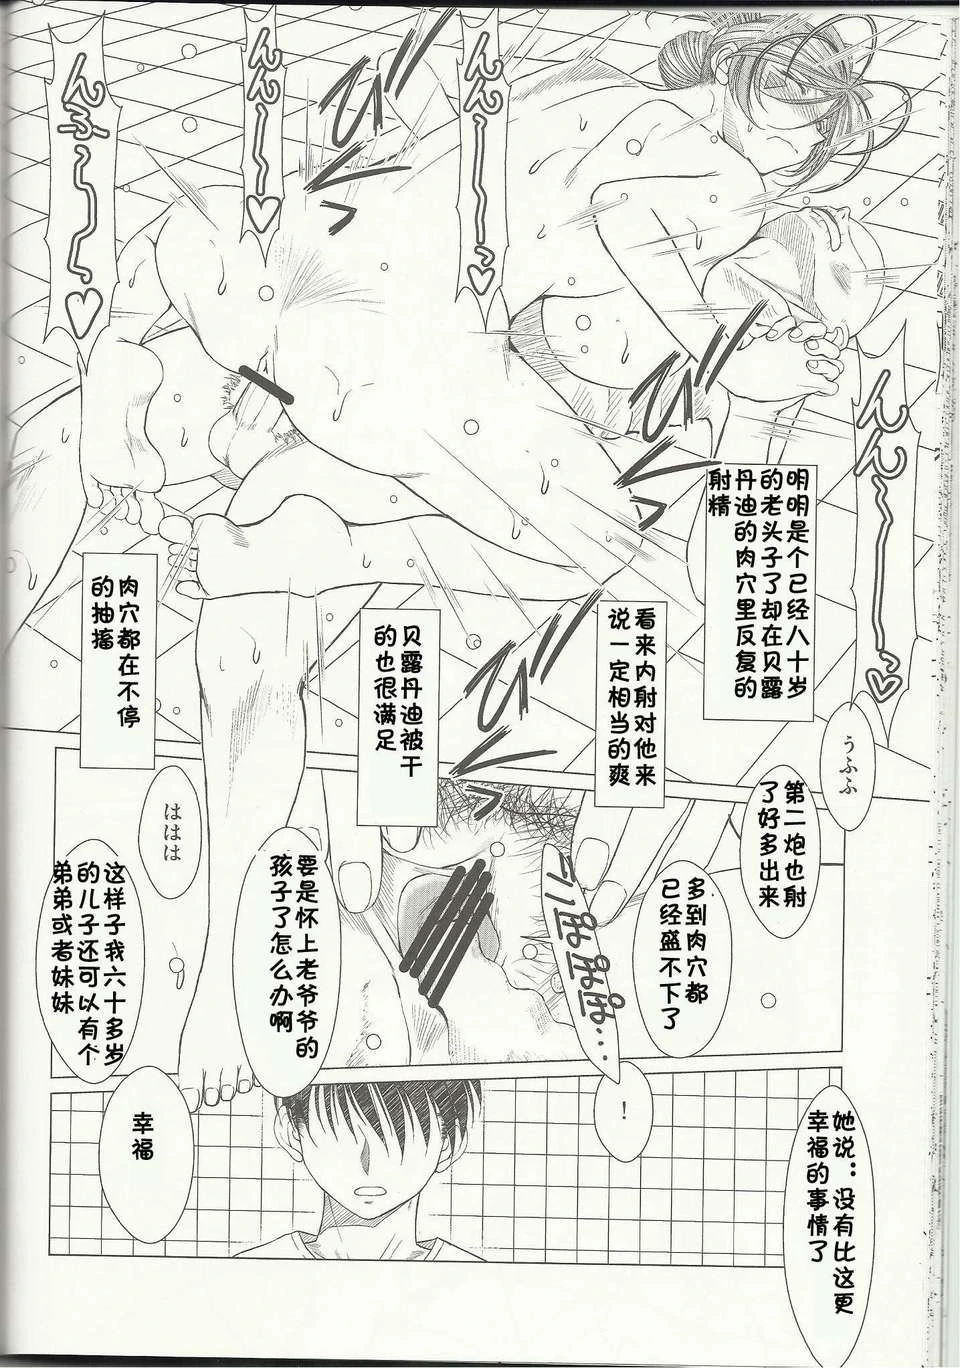 んんー〜っ♡
明明是个已经八十岁
的老头子了却在贝露
丹迪的肉穴里反复的
射精
んんー〜っ♡
看来内射对他来
说一定相当的爽
贝露丹迪被干
的也很满足
んんー〜♡
んふー〜っ♡
肉穴都在不停
的抽搐
うふふ
第二炮也射
了好多出来
多到肉穴都
已经盛不下了
要是怀上老爷爷的
孩子了怎么办啊
ははは
这样子我六十多岁
的儿子还可以有个
弟弟或者妹妹
她说：没有比这更
幸福的事情了
！
幸福